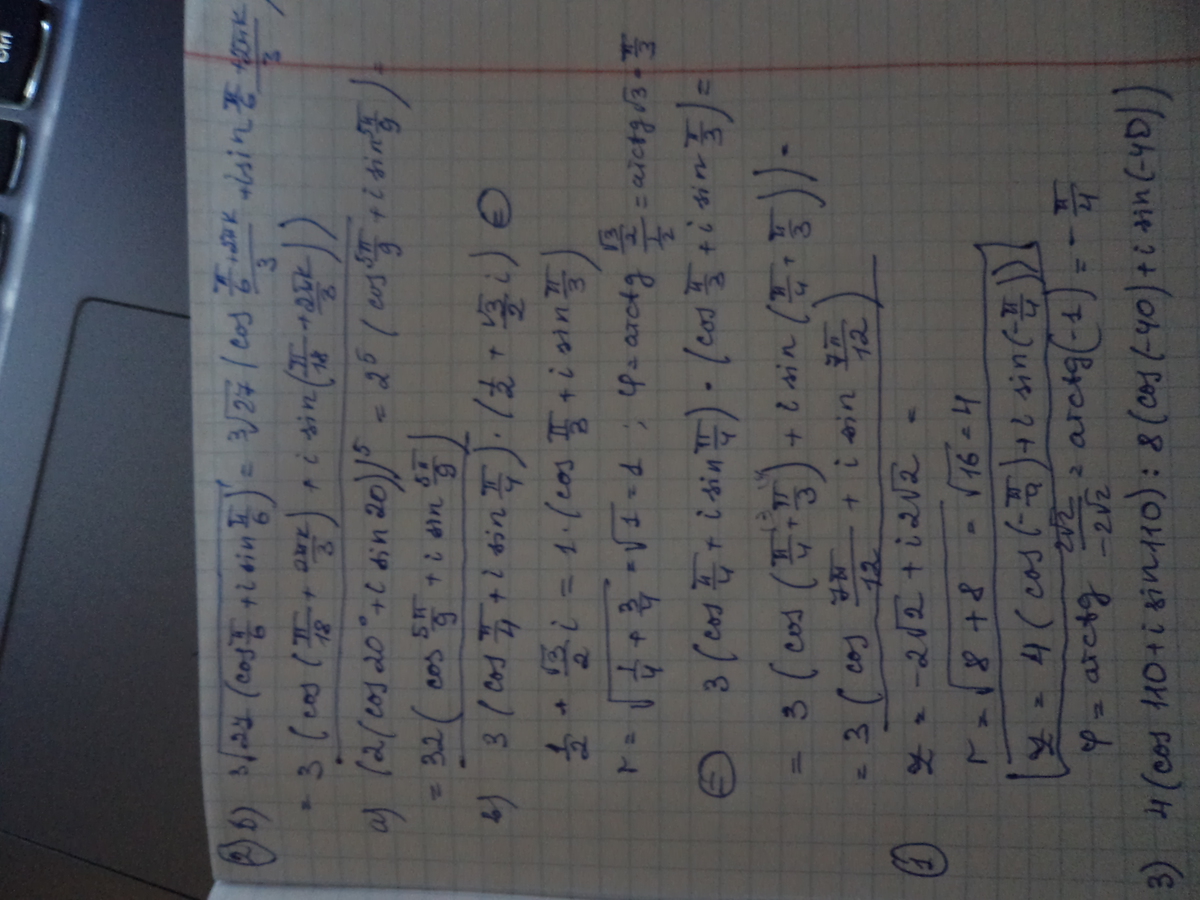 2) б) ∛(27 (cos π/6 + i sin π/6)) = ∛27 (cos (π/6 + 2πk)/3 + i sin (π/6 + 2πk)/3)
= 3 (cos (π/18 + 2πk/3) + i sin (π/18 + 2πk/3))
а) (2 (cos 20° + i sin 20))⁵ = 2⁵ (cos 5π/9 + i sin 5π/9) =
= 32 (cos 5π/9 + i sin 5π/9)
в) 3 (cos π/4 + i sin π/4) · (1/2 + √3/2 i) ⊜
1/2 + √3/2 i = 1 · (cos π/3 + i sin π/3)
r = √(1/4 + 3/4) = √1 = 1 ; φ = arctg (√3/2)/(1/2) = arctg √3 = π/3
⊜ 3 (cos π/4 + i sin π/4) · (cos π/3 + i sin π/3) =
= 3 (cos (π/4 + π/3) + i sin (π/4 + π/3)) =
= 3 (cos 7π/12 + i sin 7π/12)
1) z = -2√2 + i 2√2 =
r = √(8 + 8) = √16 = 4
z = 4 (cos (-π/4) + i sin (-π/4))
φ = arctg 2√2/-2√2 = arctg (-1) = -π/4
3) 4 (cos 110 + i sin 110) : 8 (cos (-40) + i sin (-40))
cln